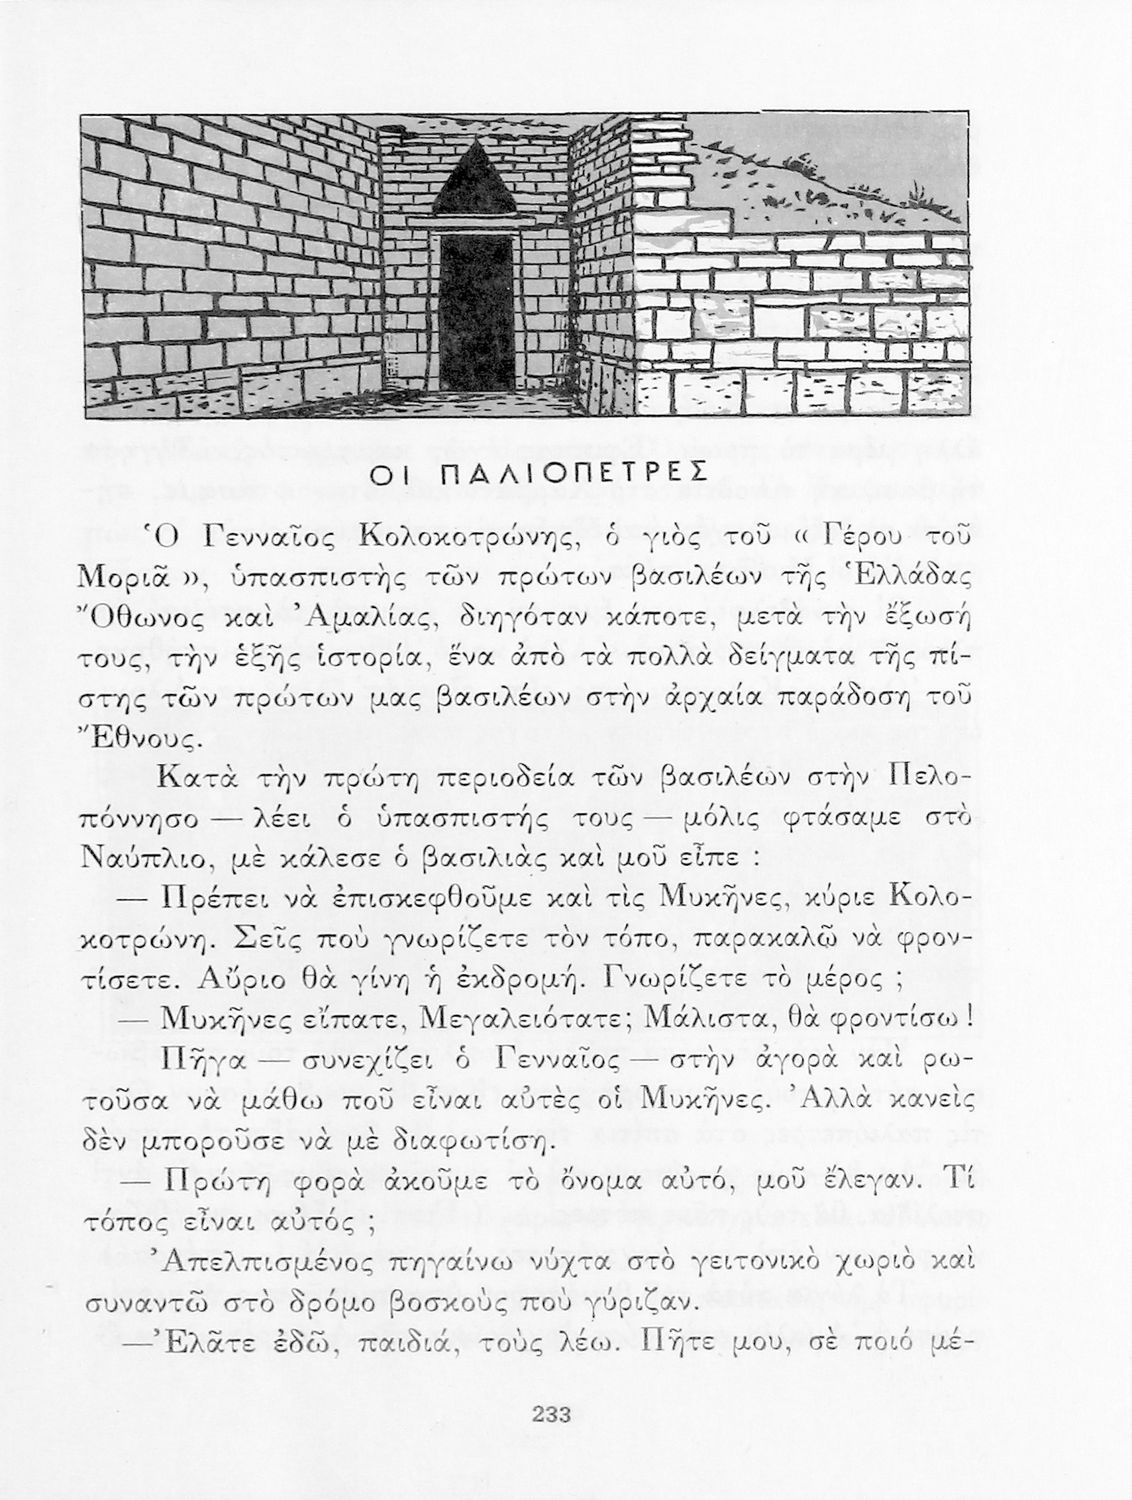 ΟΙ ΠΑΛΙΟΠΕΤΡΕΣ
Ὁ Γενναῖος Κολοκοτρώνης, ὁ γιὸς τοῦ « Γέρου τοῦ
Μοριᾶ », ὑπασπιστὴς τῶν πρώτων βασιλέων τῆς Ἑλλάδας
Ὄθωνος καὶ Ἀμαλίας, διηγόταν κάποτε, μετὰ τὴν ἔξωσή
τους, τὴν ἑξῆς ἱστορία, ἕνα ἀπὸ τὰ πολλὰ δείγματα τῆς πί-
στης τῶν πρώτων μας βασιλέων στὴν ἀρχαία παράδοση τοῦ
Ἔθνους.
Κατὰ τὴν πρώτη περιοδεία τῶν βασιλέων στὴν Πελο-
πόννησο — λέει ὁ ὑπασπιστής τους — μόλις φτάσαμε στὸ
Ναύπλιο, μὲ κάλεσε ὁ βασιλιὰς καὶ μοῦ εἶπε :
— Πρέπει νὰ ἐπισκεφθοῦμε καὶ τὶς Μυκῆνες, κύριε Κολο-
κοτρώνη. Σεῖς ποὺ γνωρίζετε τὸν τόπο, παρακαλῶ νὰ φρον-
τίσετε. Αὔριο θὰ γίνη ἡ ἐκδρομή. Γνωρίζετε τὸ μέρος ;
— Μυκῆνες εἴπατε, Μεγαλειότατε; Μάλιστα, θὰ φροντίσω !
Πῆγα — συνεχίζει ὁ Γενναῖος — στὴν ἀγορὰ καὶ ρω-
τοῦσα νὰ μάθω ποῦ εἶναι αὐτὲς οἱ Μυκῆνες. Ἀλλὰ κανεὶς
δὲν μποροῦσε νὰ μὲ διαφωτίση.
— Πρώτη φορὰ ἀκοῦμε τὸ ὄνομα αὐτό, μοῦ ἔλεγαν. Τί
τόπος εἶναι αὐτός ;
Ἀπελπισμένος πηγαίνω νύχτα στὸ γειτονικὸ χωριὸ καὶ
συναντῶ στὸ δρόμο βοσκοὺς ποὺ γύριζαν.
— Ἐλᾶτε ἐδῶ, παιδιά, τοὺς λέω. Πῆτε μου, σὲ ποιό μέ-
233